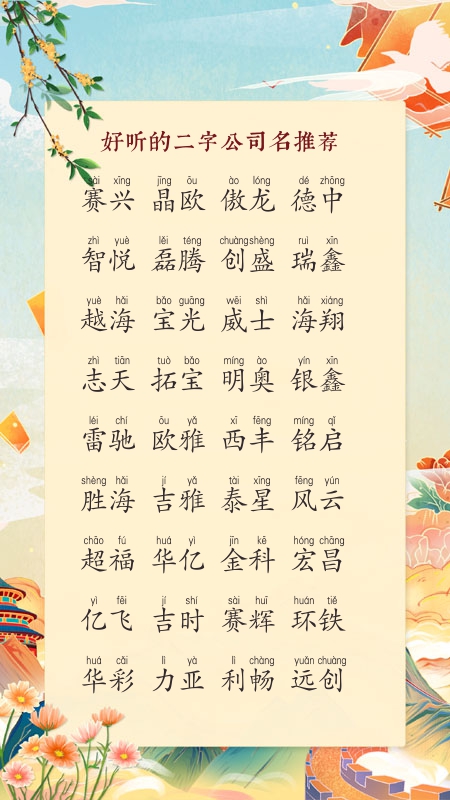 好听的二字公司名推荐
sài xīng jīng ōu ào lóng dé zhōng
赛兴 晶欧 傲龙 德中
zhì yuè lěi téng chuàng shèng ruì xīn
智悦 磊腾 创盛 瑞鑫
yuè hǎi bǎo guāng wēi shì hǎi xiáng
越海 宝光 威士 海翔
zhì tiān tuò bǎo míng ào yín xīn
志天 拓宝 明奥 银鑫
léi chí ōu yǎ xī fēng míng qǐ
雷驰 欧雅 西丰 铭启
shèng hǎi jí yǎ tài xīng fēng yún
胜海 吉雅 泰星 风云
chāo fú huá yì jīn kē hóng chāng
超福 华亿 金科 宏昌
yì fēi jí shí sài huī huán tiě
亿飞 吉时 赛辉 环铁
huá cǎi lì yà lì chàng yuǎn chuàng
华彩 力亚 利畅 远创